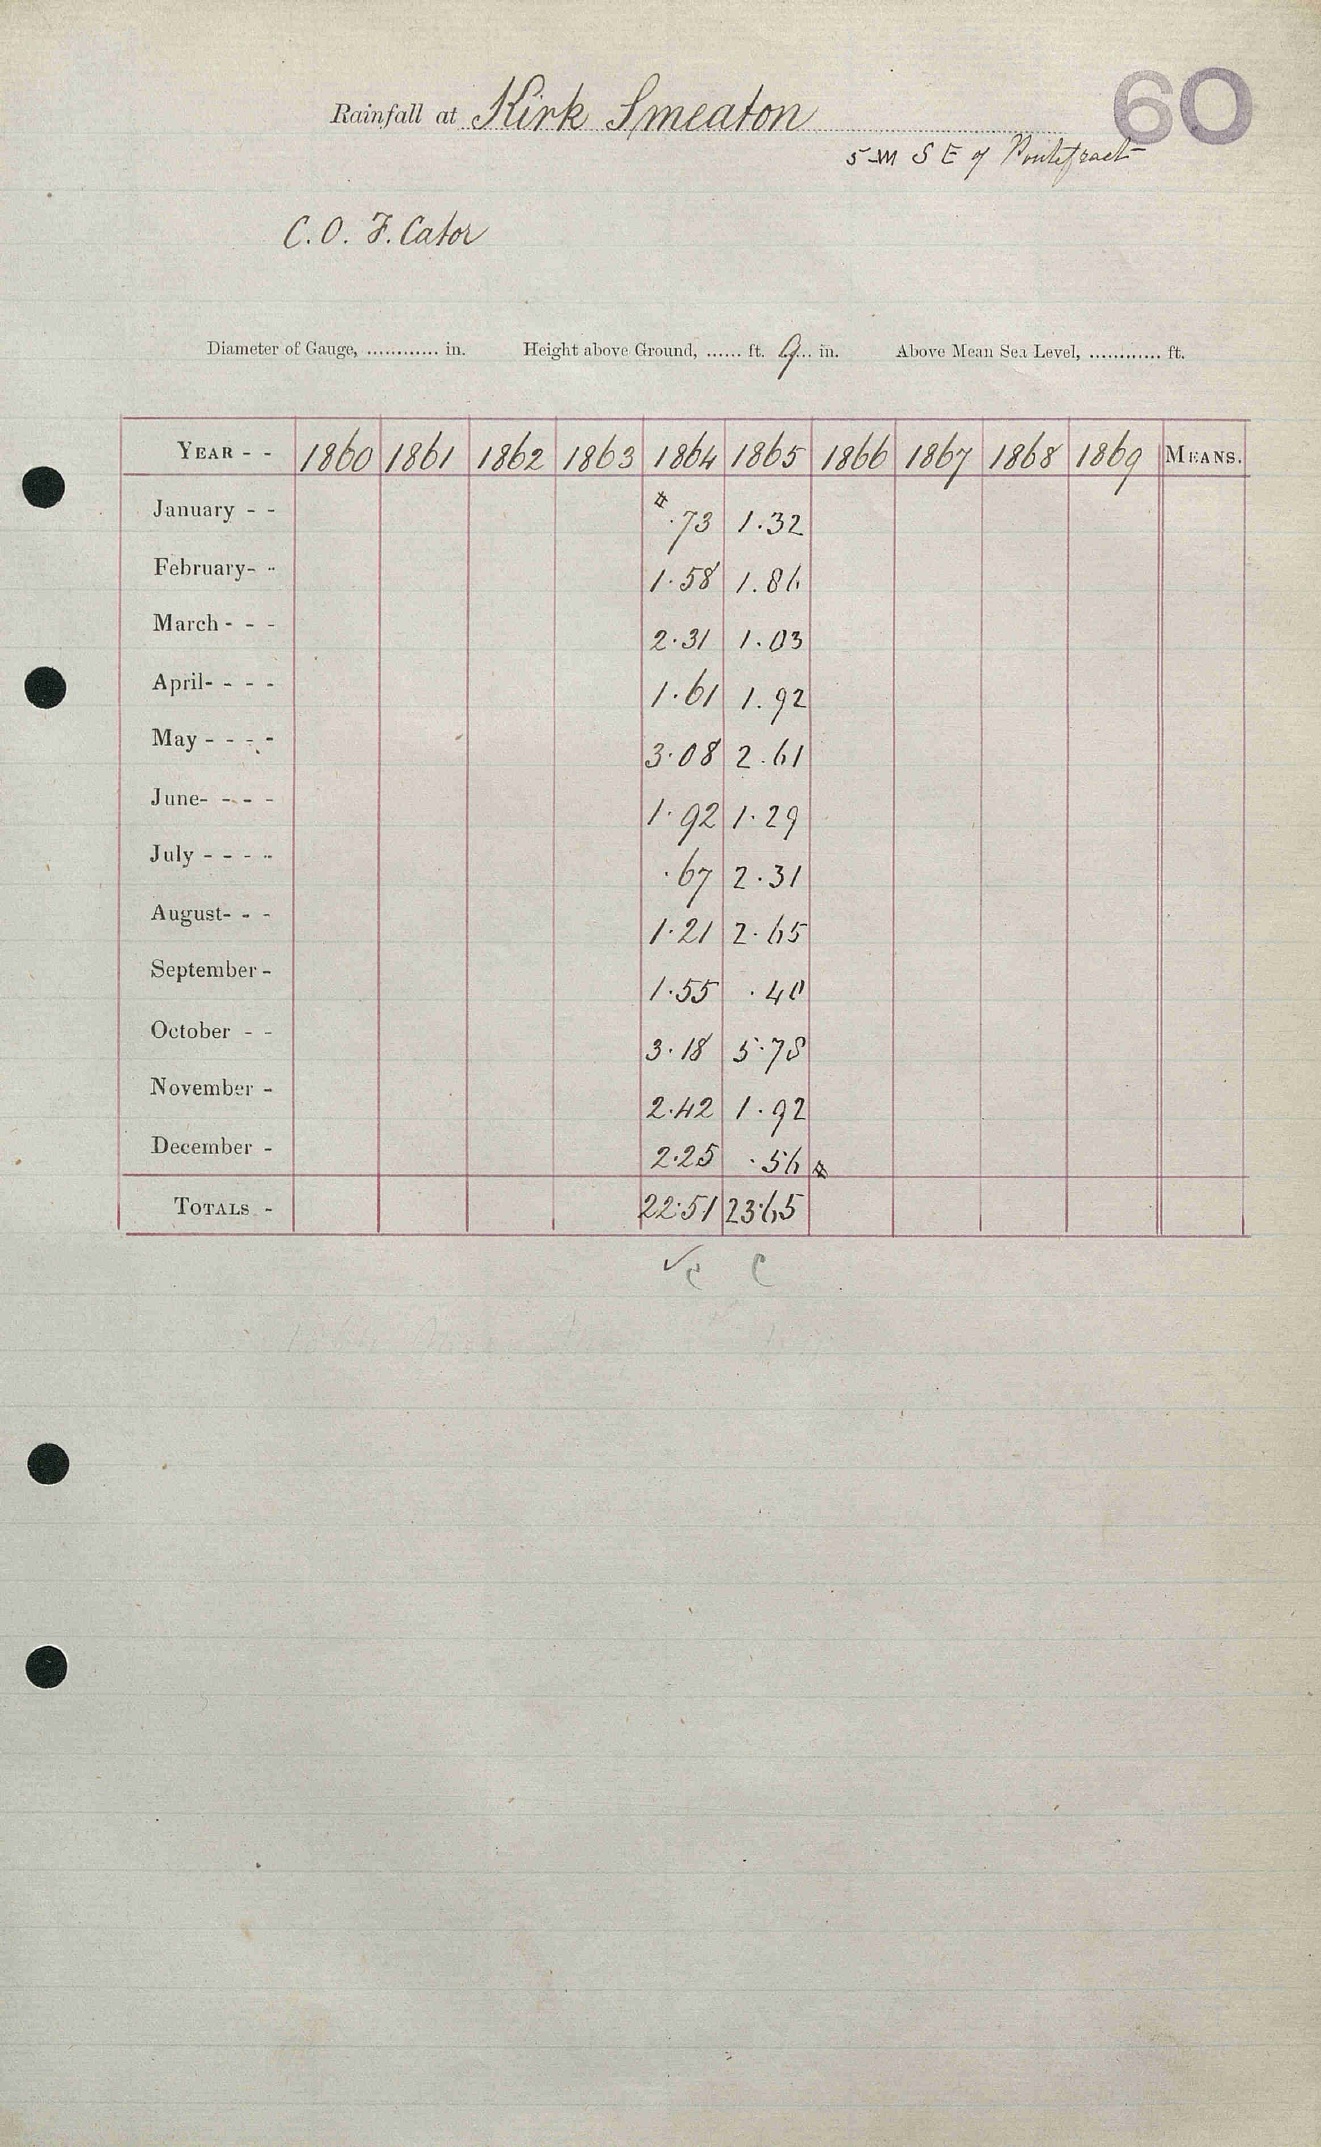 60
Rainfall at Kirk Smeaton
5 M S E of Pontefract
C. O. F. Cator
Diameter of Gauge, ............ in. Height above Ground, ...... ft. 9 in. Above Mean Sea Level, ............ ft.
YEAR - - 1860 1861 1862 1863 1864 1865 1866 1867 1868 1869 MEANS.
January - - # .73 1.32
February- - 1.58 1.86
March - - - 2.31 1.03
April- - - - 1.61 1.92
May - - - - 3.08 2.61
June- - - - 1.92 1.29
July - - - - .67 2.31
August- - - 1.21 2.65
September - 1.55 .40
October - - 3.18 5.78
November - 2.42 1.92
December - 2.25 .56 #
TOTALS - 22.51 23.65
✓ c c